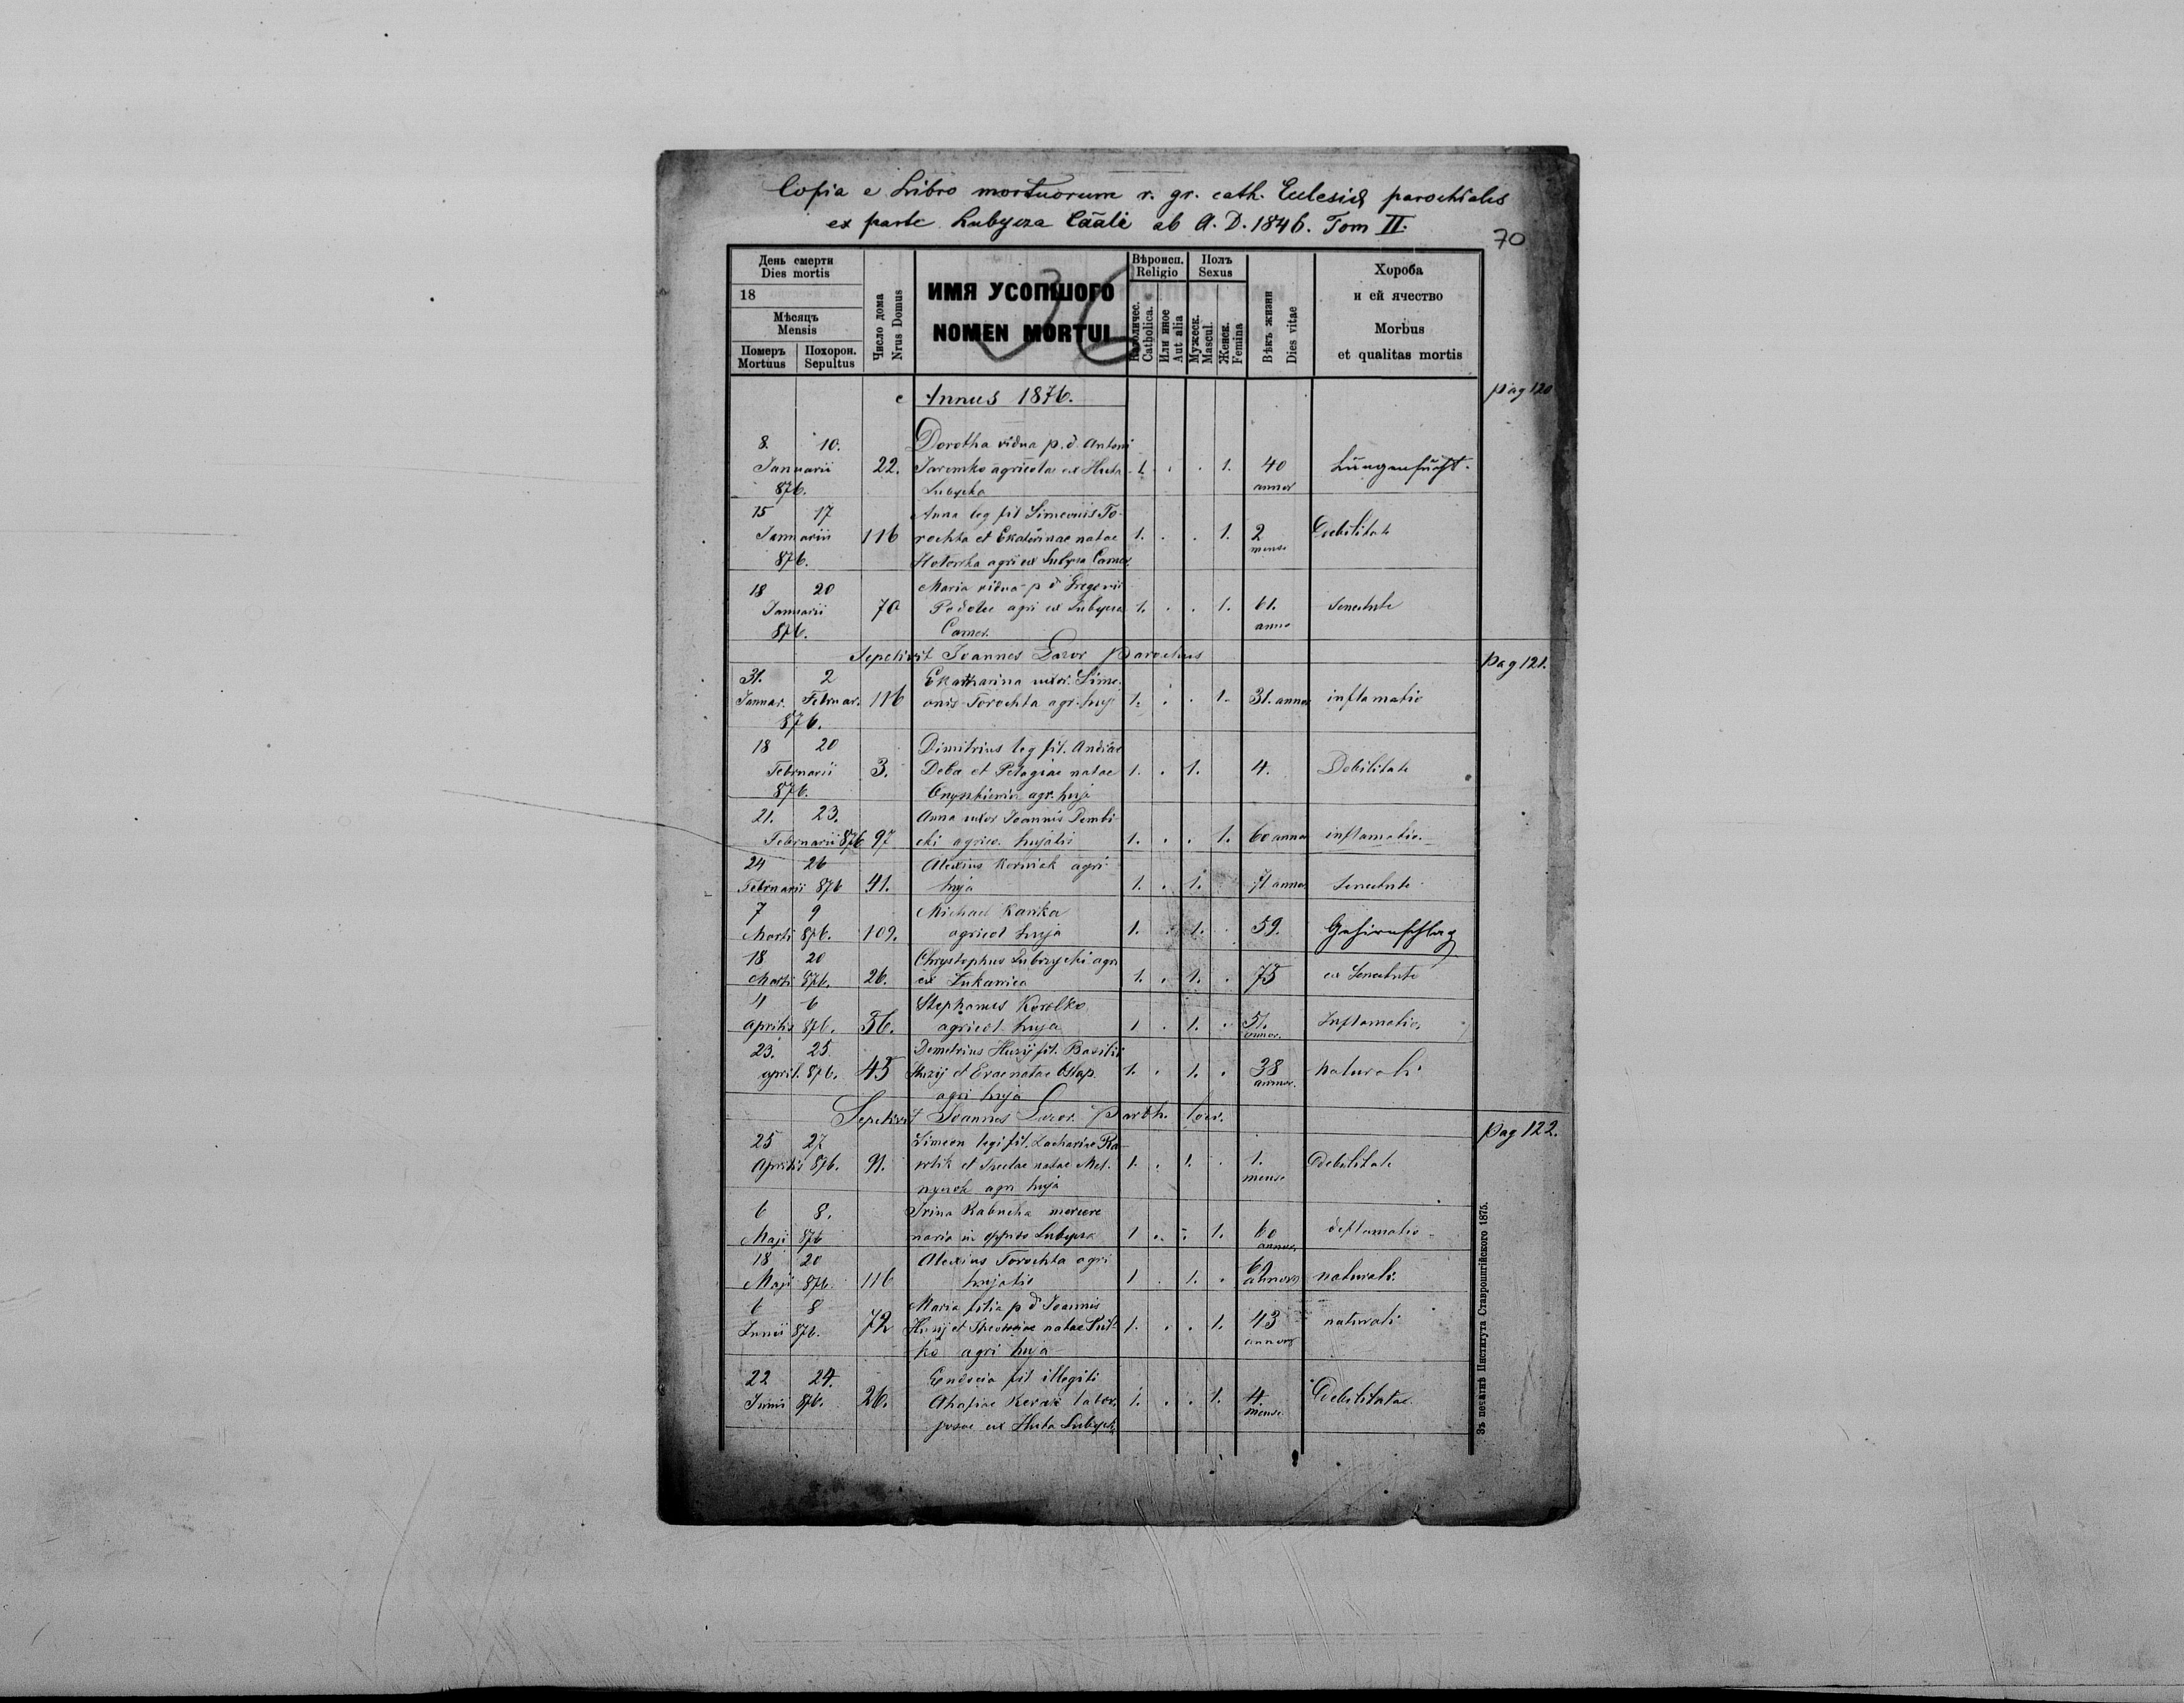 Copia e Libro mortuorum r. gr. cath. Eclesiæ parochialis
ex parte Lubycza Cāāli ab A. D. 1846. Tom II.
70
День смерти
Dies mortis
18
Мѣсяцъ
Mensis
Померъ
Mortuus
Похорон.
Sepultus
Число дома
Nrus Domus
ИМЯ УСОПШОГО
NOMEN MORTUI
Вѣроисп.
Religio
Catholica.
Или иное
Aut alia
Полъ
Sexus
Мужеск.
Mascul.
Женск.
Femina
Вѣкъ жизни
Dies vitae
Хороба
и ей ячество
Morbus
et qualitas mortis
Annus 1876.
pag 120
8. 10. Dorotha vidua p. d. Antoni
Januarii 22. Jaremko agricolae ex Huta 1. . . 1. 40 Lungensucht.
876. Lubycka annor
15 17 Anna leg fil Simeonis To-
Januarii 116 rochta et Ekaterinae natae 1. . . 1. 2 Debilitate
876. agri ex Lubycza Camer. mense
18 20 Maria vidua p d Gregorii
Januarii 70 agri ex Lubycza 1. . . 1. 61. Senectute
876. Camer. anno
Sepelivit Joannes Parochus
pag 121.
31. 2 Ekatharina uxor. Sime-
Januar. Februar. 116 onis Torochta agr. huj 1. . . 1. 31. annor inflamatio
876.
18 20 Dimitrius leg fil. Andreae
Februarii 3. et Pelagiae natae 1. . 1. 4. Debilitate
876. agr. huja
21. 23. Anna uxor Joannis Dembi-
Februarii 876 97 cki agrico. hujatis 1. . . 1. 60 annor inflamatio.
24 26 Alexius agri
Februarii 876 41. huja 1. . 1. 71 annor Senectute
7 9 Michael Kawka
Marti 876. 109. agricol huja 1. . 1. . 59. Gehirnschlag
18 20 Chrystophus agri
Marti 876. 26. ex 1. . 1. . 75 ex Senectute
4 6 Stephanus Korolko
Aprilis 876. 56. agricol huja 1 . 1. . 51. Inflamatio
annor.
23. 25. Demetrius Huzij fil. Basilii
april. 876. 45 Huzij et Evae natae Ostap. 1. . 1. . 38 naturali
agri huja annor.
Sepelivit Joannes Paroch. loci.
pag 122.
25 27 Simeon legi fil. Zachariae
Aprilis 876. 91. et natae 1. . 1. . 1. Debilitate
agri huja mense
6 8. Irina Kabucha mercere
Maji 876 naria in oppido Lubycza 1 . . 1. 60
annor.
18 20 Alexius Torochta agri
Maji 876 116 hujatis 1 . 1. . annor naturali.
6 8 Maria filia p d Joannis
Junii 876. 72 Huzij et natae 1. . . 1. 43 naturali
ko agri huja annor
22 24. Eudocia fil illegiti
Junii 876. 26. Ahafiae 1. . . 1. 4. Debilitatae.
ex Huta Lubyck mense.
Зъ печатнѣ Института Ставропигійского 1875.